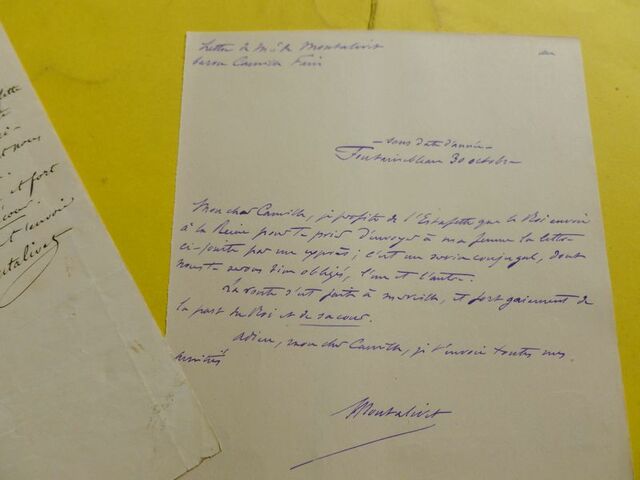 Lettre de Mr de Montalivet
baron Camille Fain
- sans date d'année -
Fontainebleau 30 octobre
Mon cher Camille, je profite de l'Estafette que le Roi envoie
à la Reine pour te prier d'envoyer à ma femme la lettre
ci-jointe par un exprès; c'est un soin conjugal, dont
nous te serons bien obligés, l'un et l'autre.
La route s'est faite à merveille, et fort gaiement de
la part du Roi et de sa cour.
Adieu, mon cher Camille, je t'envoie toutes mes
amitiés
Montalivet
lette
nous
et fort
cour
t'envoie
ntalivet